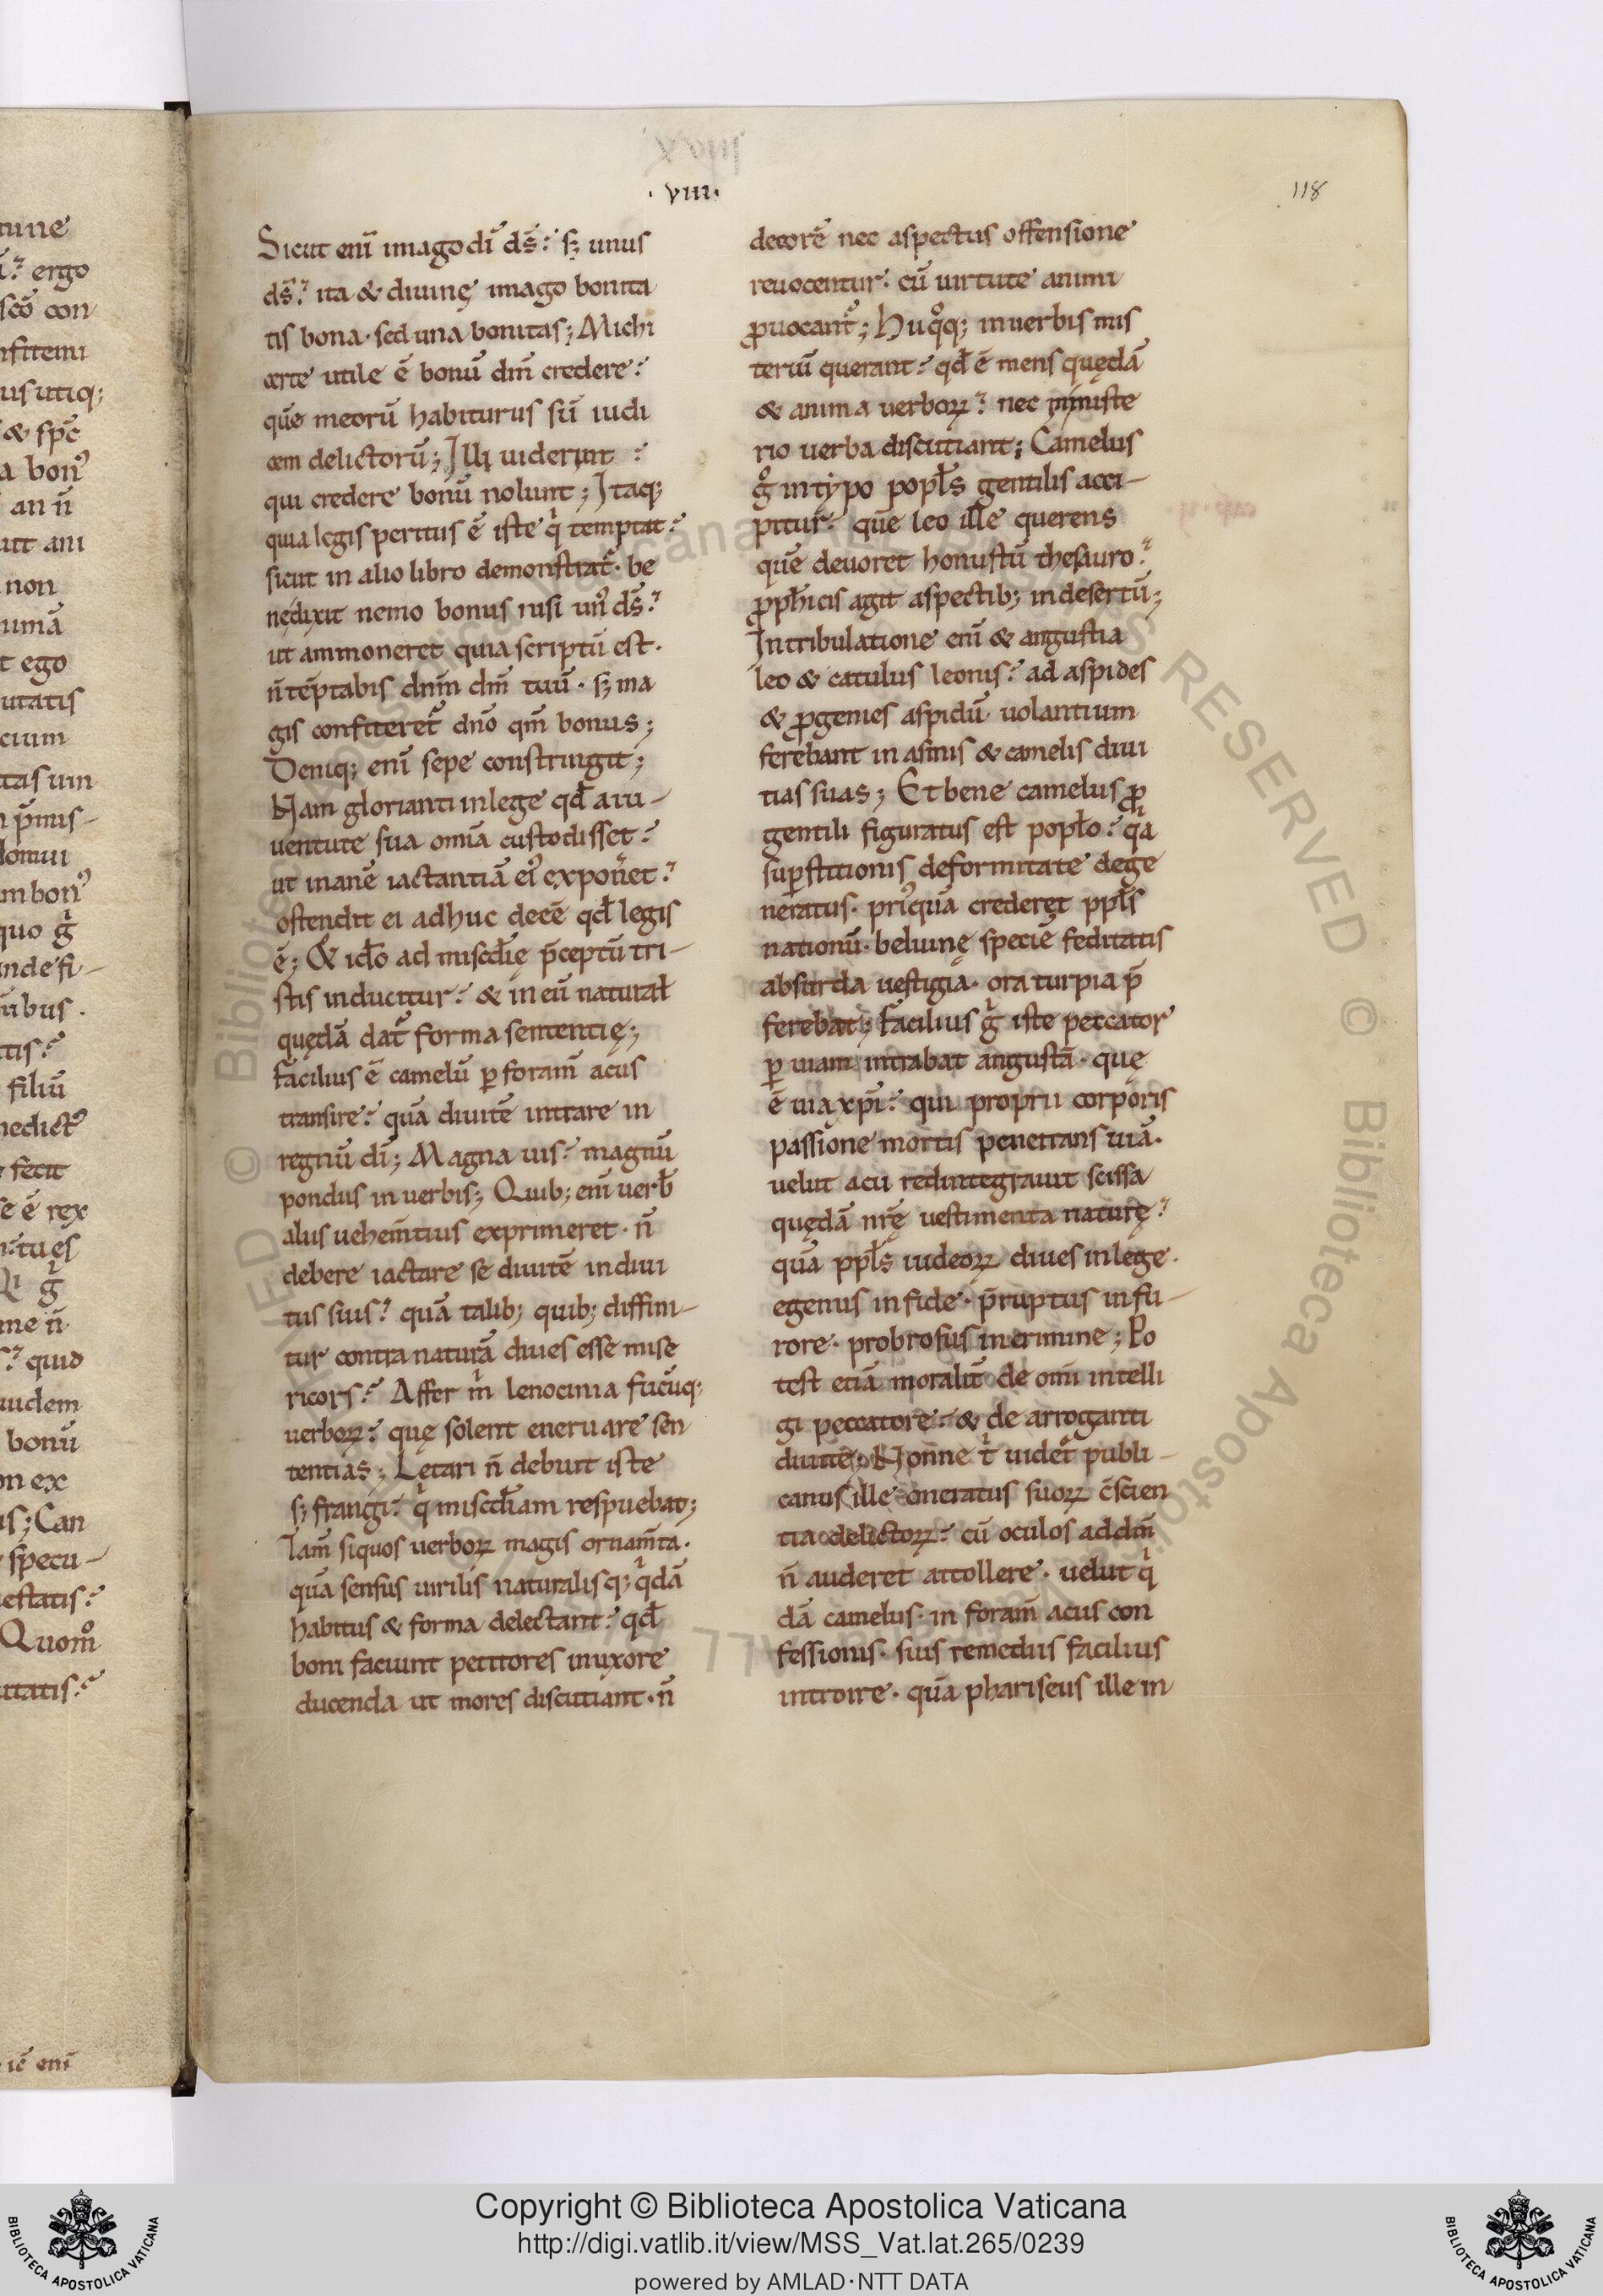 ·VIII·
118
Sicut eni̅ imago di̅ ds̅: sꝫ unus
ds̅: ita & diuinę imago bonita
tis bona· sed una bonitas; Michi
certe utile e̅ bonu̅ dm̅ credere:
que̅ meoru̅ habiturus su̅ iudi
cem delictoru̅; Illi uiderint :
qui credere bonu̅ nolunt; Itaqꝫ
quia legis peritus e̅ iste qͥ temptat:
sicut in alio libro demonstrat᷑· be
nedixit nemo bonus nisi unꝰ ds̅:
ut ammoneret quia scriptu̅ est·
n̅ te̅ptabis dnm̅ dm̅ tuu̅· sꝫ ma
gis confiteret᷑ dn̅o qm̅ bonus;
Deniqꝫ eni̅ sepe constringit;
Nam glorianti in lege qd̅ a iu-
uentute sua omnia custodisset:
ut inane̅ iactantia̅ eiꝰ exponͥet:
ostendit ei adhuc dece̅ qd̅ legis
e̅; & idō ad miscdīę p̅ceptu̅ tri-
stis inducitur: & in eu̅ natural̅
quęda̅ dat᷑ forma sententię;
facilius e̅ camelu̅ ꝑ foram̅ acus
transire: qua̅ diuite̅ intrare in
regnu̅ di̅; Magna uis: magnu̅
pondus in uerbis; Quibꝫ eni̅ uerb̅
alius uehem̅tius exprimeret· n̅
debere iactare se diuite̅ in diui
tiis suis: qua̅ talibꝫ quibꝫ diffini-
tur contra natura̅ diues esse mise
ricors: Affer mͥ lenocinia fucu̅qꝫ
uerboꝝ: quę solent eneruare sen
tentias; Letari n̅ debuit iste
sꝫ frangi: qͥ miscdīam respuebat;
Iam̅ siquos uerboꝝ magis ornam̅ta·
qua̅ sensus uirilis naturalisqꝫ qͥda̅
habitus & forma delectant: qd̅
boni faciunt petitores in uxore
ducenda ut mores discutiant· n̅
decore̅ nec aspectus offensione
reuocentur· cu̅ uirtute animi
ꝓuocant᷑; Huqͦqꝫ in uerbis mis
teriu̅ querant: qd̅ e̅ mens quęda̅
& anima uerboꝝ: nec ministe
rio uerba discutiant; Camelus
gͦ in typo popls̅ gentilis acci-
pitur· que̅ leo ille querens
que̅ deuoret honustu̅ thesauro:
ꝓph̅icis agit aspectibꝫ in desertu̅;
In tribulatione eni̅ & angustia
leo & catulus leonis: ad aspides
& ꝓgenies aspidu̅ uolantium
ferebant in asinis & camelis diui
tias suas; Et bene camelus ꝓ
gentili figuratus est popl̅o: qͥa
suꝑstitionis deformitate dege
neratus· priꝰqua̅ crederet ppl̅s
nationu̅· beluinę specie̅ feditatis
absurda uestigia· ora turpia p̅
ferebat; Facilius gͥ iste peccator
ꝑ uiam intrabat angusta̅· quę
e̅ uia xp̅i: qui proprii corporis
passione mortis penetrans uia̅·
uelut acu redintegrauit scissa
quęda̅ nr̅ę uestimenta naturę:
qua̅ ppl̅s iudeoꝝ diues in lege·
egenus in fide· p̅ruptus in fu-
rore· probrosus in crimine; Po
test etia̅ moralit᷑ de omi̅ intelli
gi peccatore: & de arroganti
diuite; Nonne tͥ uidet᷑ publi-
canus ille oneratus suoꝝ c̅scien
tia delictoꝝ: cu̅ oculos ad dm̅
n̅ auderet attollere· uelut qͥ
da̅ camelus· in foram̅ acus con
fessionis· suis remediis facilius
introire· qua̅ phariseus ille in
Copyright © Biblioteca Apostolica Vaticana
http://digi.vatlib.it/view/MSS_Vat.lat.265/0239
powered by AMLAD·NTT DATA